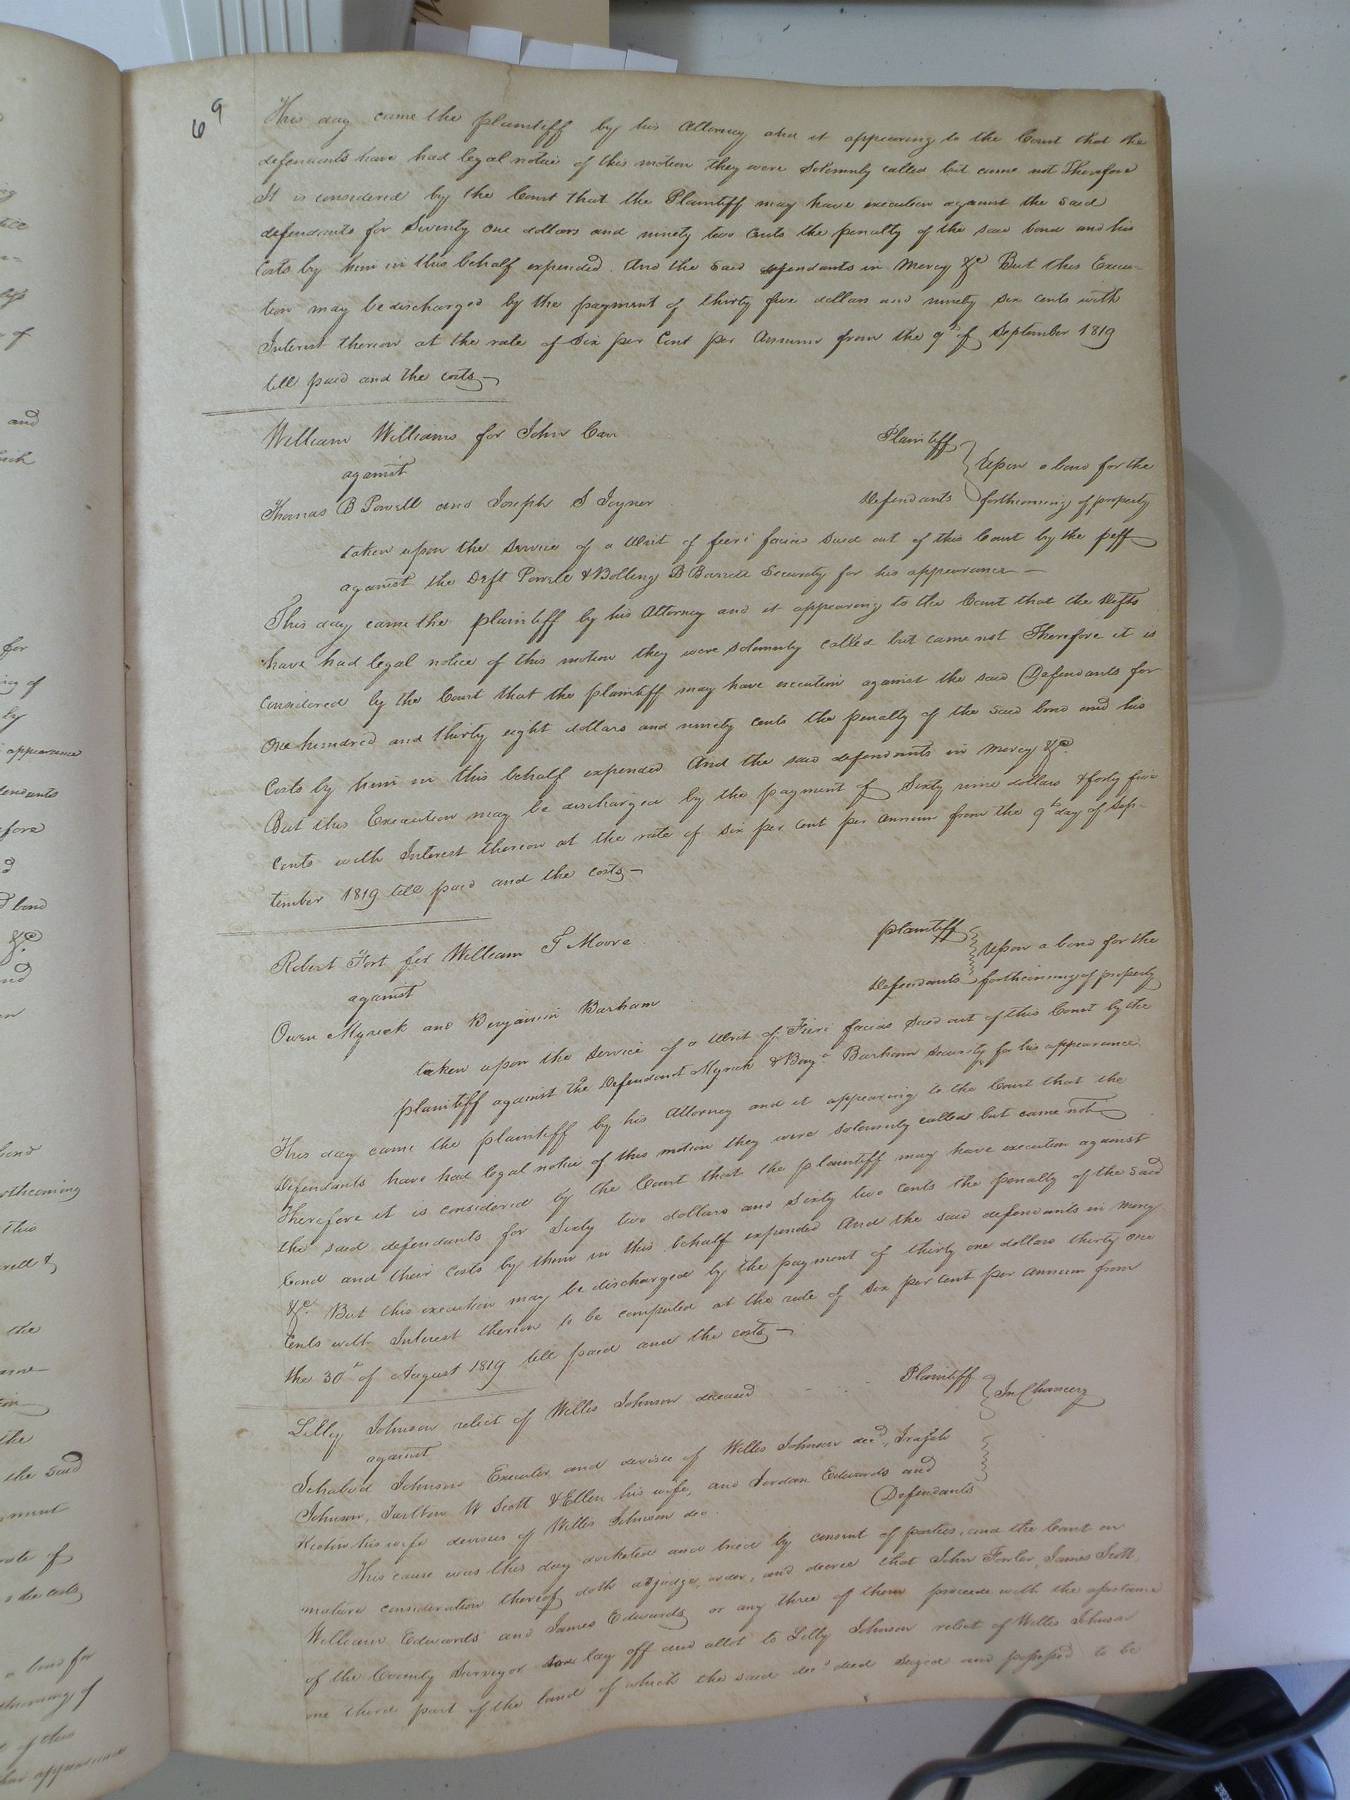 69
This day came the plaintiff by his Attorney and it appearing to the Court that the
defendants have had legal notice of this motion they were solemnly called but came not Therefore
It is considered by the Court that the Plaintiff may have execution against the said
defendants for Seventy one dollars and ninety two Cents the penalty of the said bond and his
Costs by him in this behalf expended. And the said defendants in Mercy &c But this Execu-
tion may be discharged by the payment of thirty five dollars and ninety six cents with
Interest thereon at the rate of six per Cent per Annum from the 9th of September 1819
till paid and the costs—
William Williams for John Carr
Plaintiff
against
Upon a bond for the
Thomas B Powell and Joseph S Joyner
Defendants
forthcoming of property
taken upon the service of a Writ of fieri facias sued out of this Court by the peff
against the Deft Powell & Bolling B Barrell Security for his appearance—
This day came the plaintiff by his Attorney and it appearing to the Court that the Defts
have had legal notice of this motion they were solemnly called but came not Therefore it is
Considered by the Court that the plaintiff may have execution against the said Defendants for
One hundred and thirty eight dollars and ninety cents the penalty of the said bond and his
Costs by him in this behalf expended And the said defendants in mercy &c.
But this Execution may be discharged by the payment of Sixty nine dollars & forty five
Cents with Interest thereon at the rate of six per Cent per annum from the 9th day of Sep-
tember 1819 till paid and the costs—
Robert Fort for William T Moore
plaintiff
against
Upon a bond for the
Owen Myrick and Benjamin Barham
Defendants
forthcoming of property
taken upon the service of a Writ of Fieri facias sued out of this Court by the
plaintiff against the Defendant Myrick & Benja. Barham security for his appearance.
This day came the plaintiff by his Attorney and it appearing to the Court that the
Defendants have had legal notice of this motion they were solemnly called but came not
Therefore it is considered by the Court that the plaintiff may have execution against
the said defendants for Sixty two dollars and sixty two cents the penalty of the said
bond and their Costs by them in this behalf expended And the said defendants in mercy
&c. But this execution may be discharged by the payment of thirty one dollars thirty one
Cents with Interest thereon to be computed at the rate of six per cent per annum from
the 30th of August 1819 till paid and the costs—
Lilly Johnson relict of Willis Johnson deceased
Plaintiff
In Chancery
against
Ichabod Johnson Executor and devisee of Willis Johnson decd,
Johnson, Tarlton W Scott & Ellen his wife, and Jordan Edwards and
his wife devisees of Willis Johnson dec.
Defendants
This cause was this day docketed and tried by consent of parties, and the Court on
mature consideration thereof doth adjudge, order, and decree that John Fowler, James Scott,
William Edwards and James Edwards or any three of them proceed with the assistance
of the County Surveyor lay off and allot to Lilly Johnson relict of Willis Johnson
one third part of the land of which the said decd died seized and possessed to be